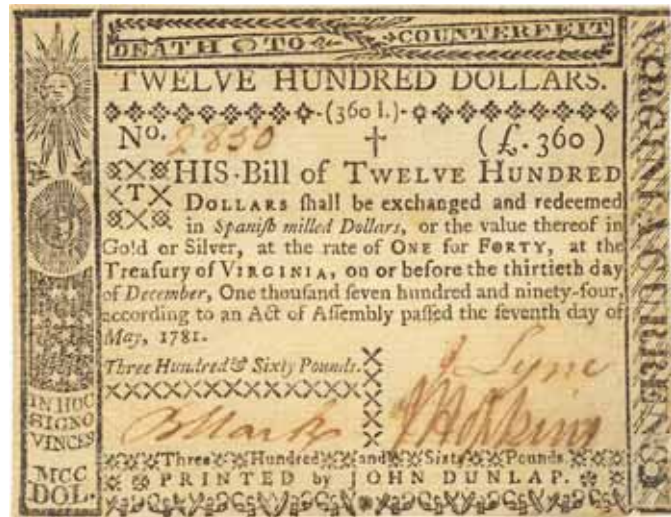 DEATH TO COUNTERFEIT
TWELVE HUNDRED DOLLARS.
(360 l.)
No. 2850 (£. 360)
THIS Bill of TWELVE HUNDRED
DOLLARS ſhall be exchanged and redeemed
in Spaniſh milled Dollars, or the value thereof in
Gold or Silver, at the rate of ONE for FORTY, at the
Treaſury of VIRGINIA, on or before the thirtieth day
of December, One thouſand ſeven hundred and ninety-four,
according to an Act of Aſſembly paſſed the ſeventh day of
May, 1781.
Three Hundred & Sixty Pounds.
Lyne
Hopkins
Three Hundred and Sixty Pounds
PRINTED by JOHN DUNLAP.
IN HOC
SIGNO
VINCES
MCC
DOL.
VIRGINIA CURRENCY